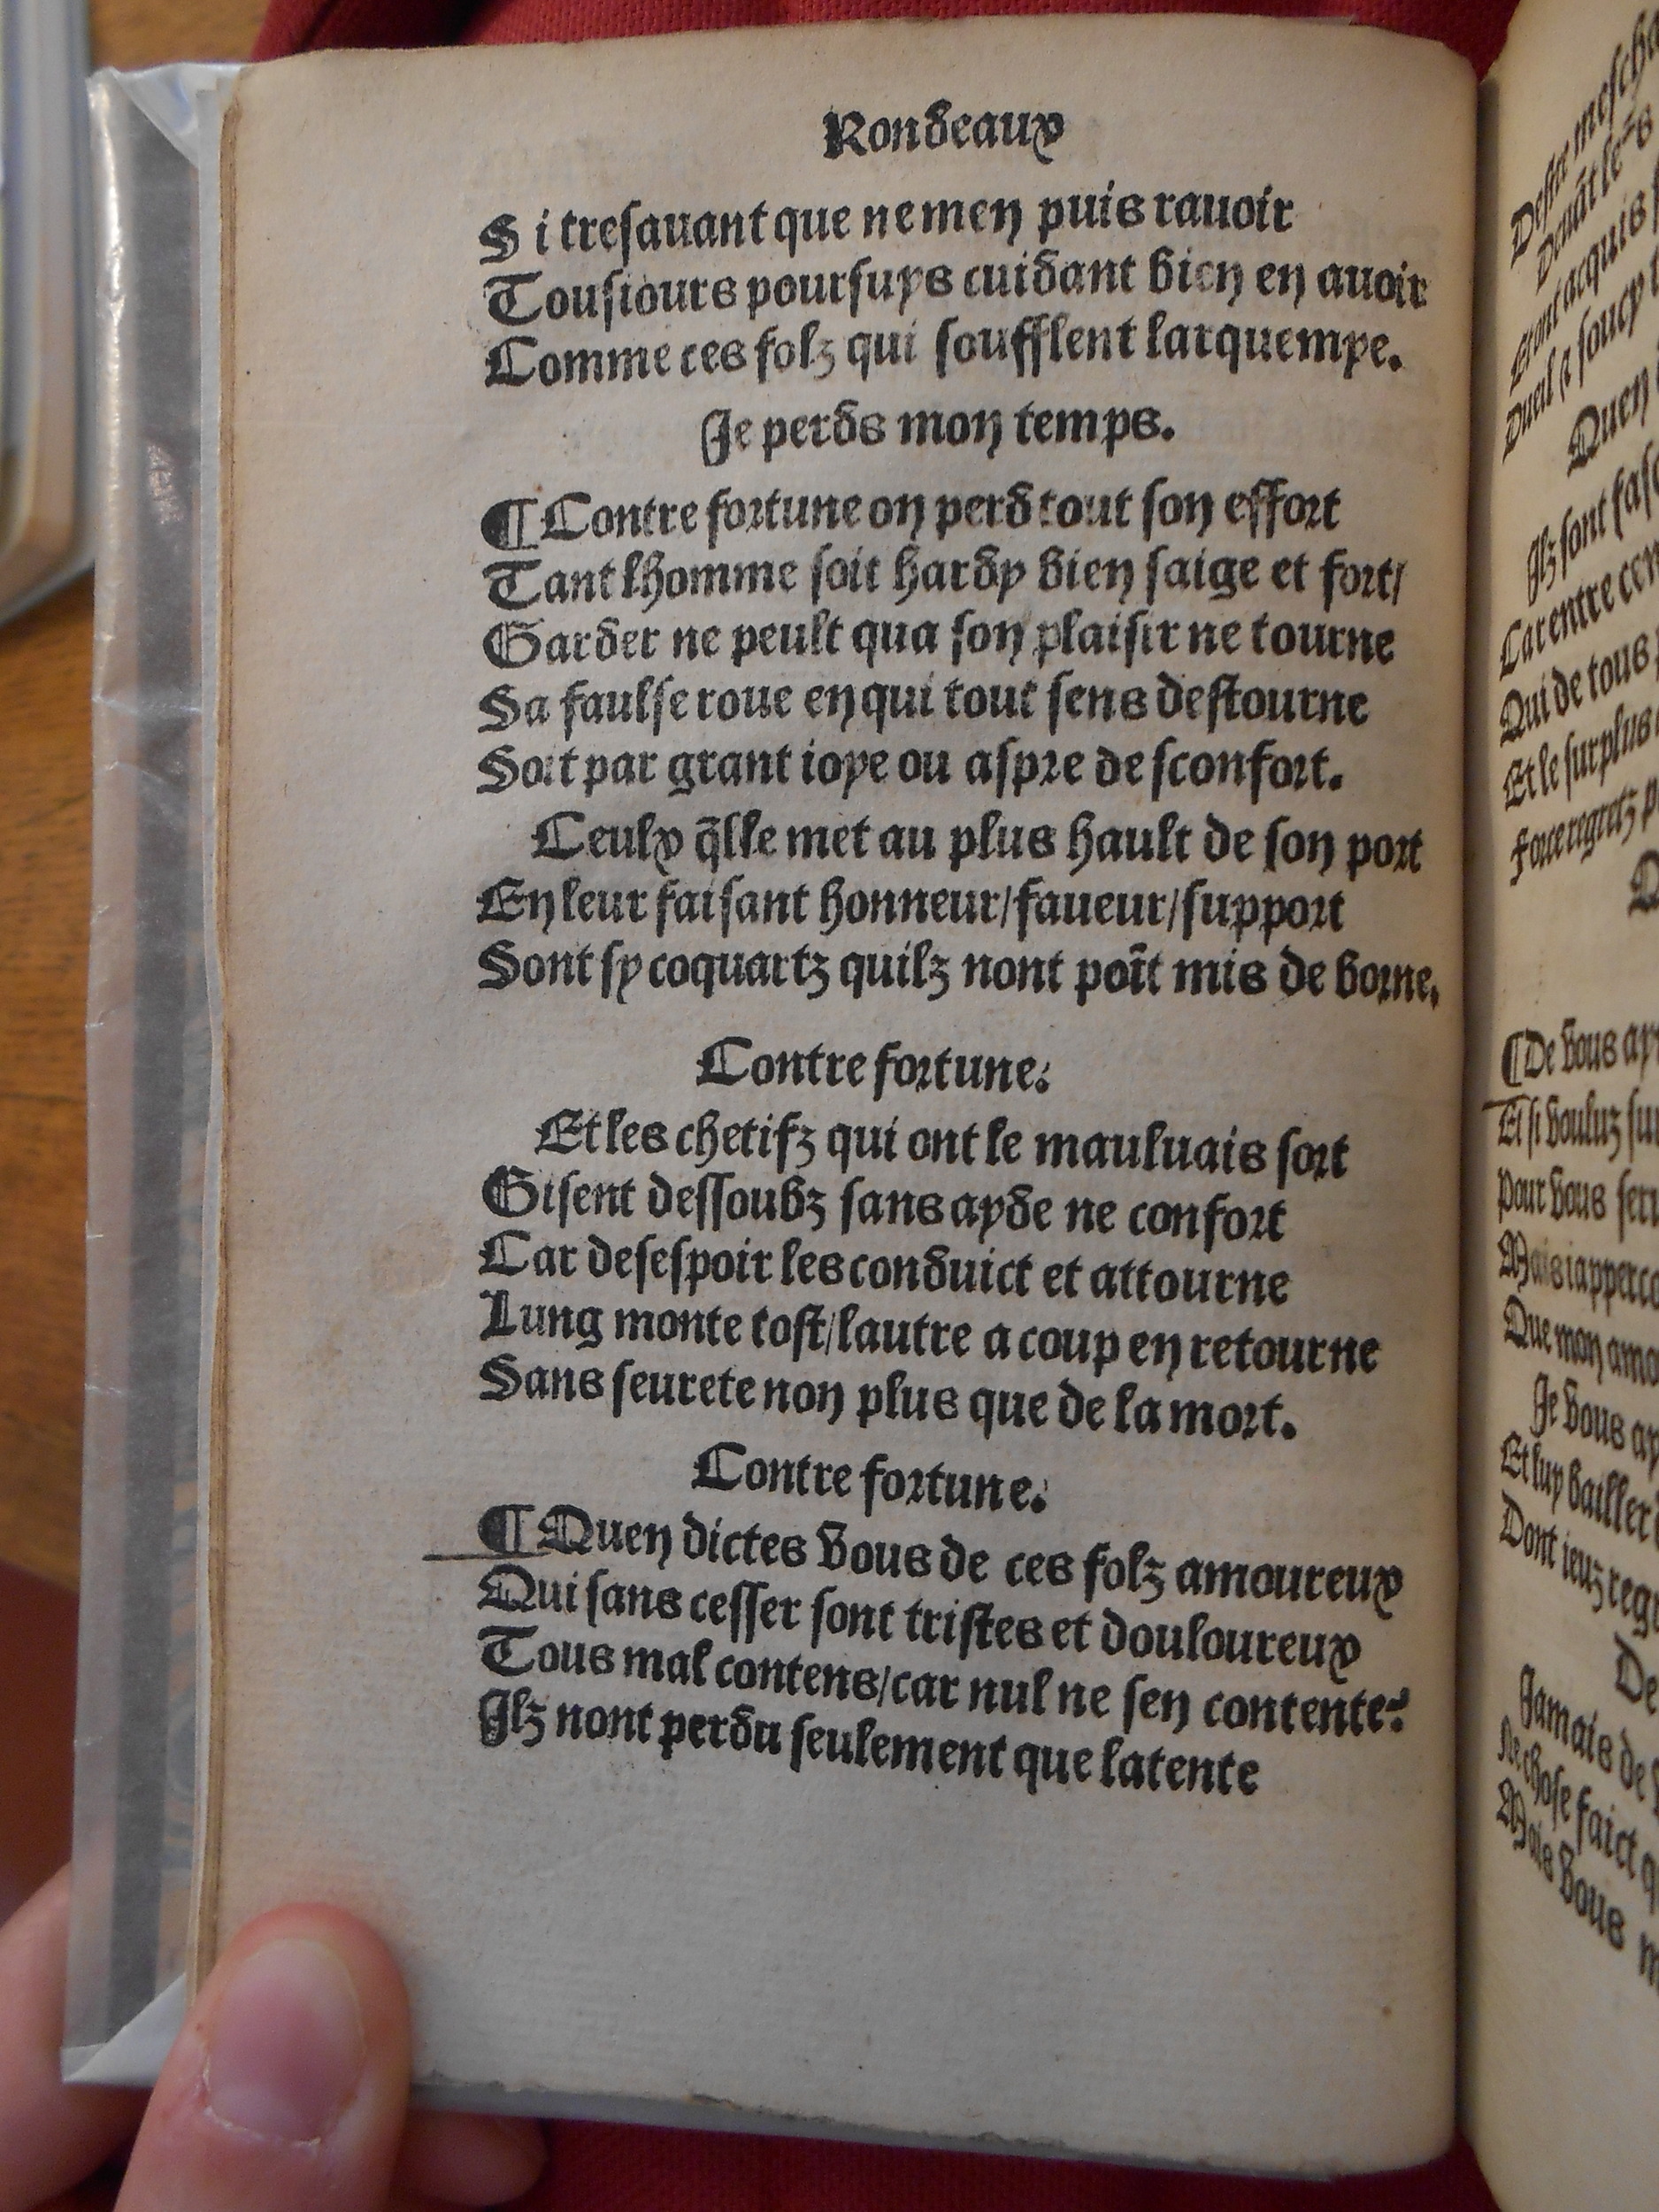 Rondeaux
Si tresauant que ne men puis rauoir
Tousiours poursuys cuidant bien en auoir
Comme ces folz qui soufflent larquemye.
Je perds mon temps.
¶ Contre fortune on perd tout son effort
Tant lhomme soit hardy bien saige et fort/
Garder ne peult qua son plaisir ne tourne
Sa faulse roue en qui tout sens destourne
Soit par grant ioye ou aspre desconfort.
Ceulx q̃lle met au plus hault de son port
En leur faisant honneur/faueur/support
Sont sy coquartz quilz nont poĩt mis de borne.
Contre fortune.
Et les chetifz qui ont le mauluais sort
Gisent dessoubz sans ayde ne confort
Car desespoir les conduict et attourne
Lung monte tost/lautre a coup en retourne
Sans seurete non plus que de la mort.
Contre fortune.
¶ Quen dictes vous de ces folz amoureux
Qui sans cesser sont tristes et douloureux
Tous mal contens/car nul ne sen contente?
Ilz nont perdu seulement que latente
Desire
Et ont acquis
Dueil soucy
Quen
Ilz sont
Car entre
Qui de tous
Et le surplus
Force regretz
¶ De vous
Et si vouluz
Pour vous
Mais iapperco
Que mon amo
Je vous
Et luy bailler
Dont
De
Jamais de
Ne chose faict
Mais vous